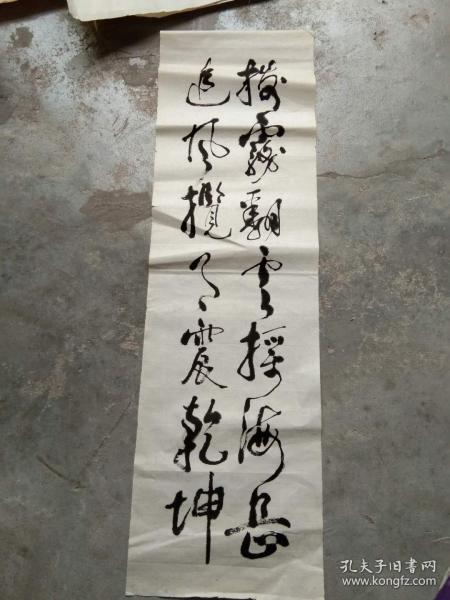 霧翻雲摇海岳
追风攬月震乾坤
孔夫子旧书网
www.kongfz.com